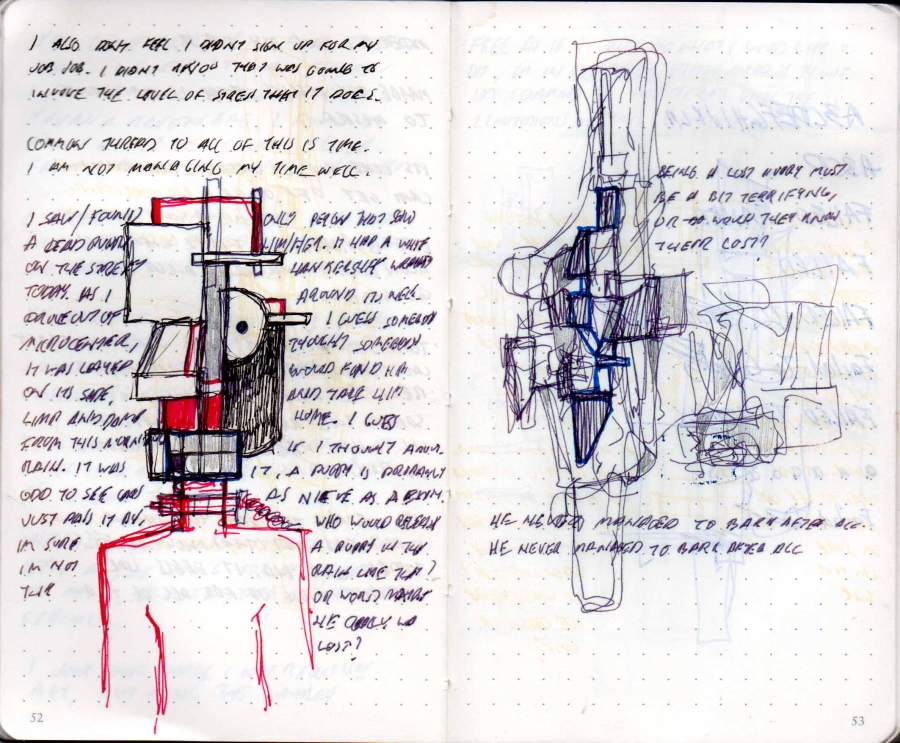 I ALSO DON'T FEEL I DIDN'T SIGN UP FOR MY
JOB JOB. I DIDN'T KNOW THAT WAS GOING TO
INVOLVE THE LEVEL OF STRESS THAT IT DOES.
COMMON THREAD TO ALL OF THIS IS TIME.
I AM NOT MANAGING MY TIME WELL.
I SAW/FOUND
A DEAD PUPPY
ON THE STREET
TODAY. AS I
DROVE OUT OF
MICROCENTER,
IT WAS LAYING
ON ITS SIDE,
LIMP AND DAMP
FROM THIS MORNING
RAIN. IT WAS
ODD TO SEE CARS
JUST PASS IT BY.
IM SURE
IM NOT
THE
ONLY PERSON THAT SAW
HIM/HER. IT HAD A WHITE
HANKERCHIEF WRAPPED
AROUND ITS NECK.
I GUESS SOMEBODY
THOUGHT SOMEBODY
WOULD FIND HIM
AND TAKE HIM
HOME. I GUESS
IF I THOUGHT ABOUT
IT, A PUPPY IS PROBABLY
AS NIEVE AS A BABY.
WHO WOULD
A PUPPY IN THE
RAIN LIKE THAT?
OR WORSE, MAYBE
HE
LOST?
52
BEING A LOST PUPPY MUST
BE A BIT TERRIFYING,
OR DO WOULD THEY KNOW
THEIR LOST?
HE NEVER MANAGED TO BARK AFTER ALL.
HE NEVER MANAGED TO BARK AFTER ALL
53